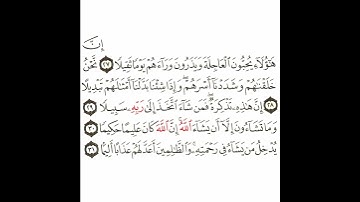 إِنَّ
هَٰٓؤُلَآءِ يُحِبُّونَ ٱلْعَاجِلَةَ وَيَذَرُونَ وَرَآءَهُمْ يَوْمًا ثَقِيلًا ٢٧ نَّحْنُ
خَلَقْنَٰهُمْ وَشَدَدْنَآ أَسْرَهُمْ ۖ وَإِذَا شِئْنَا بَدَّلْنَآ أَمْثَٰلَهُمْ تَبْدِيلًا
٢٨ إِنَّ هَٰذِهِۦ تَذْكِرَةٌ ۖ فَمَن شَآءَ ٱتَّخَذَ إِلَىٰ رَبِّهِۦ سَبِيلًا ٢٩
وَمَا تَشَآءُونَ إِلَّآ أَن يَشَآءَ ٱللَّهُ ۚ إِنَّ ٱللَّهَ كَانَ عَلِيمًا حَكِيمًا ٣٠
يُدْخِلُ مَن يَشَآءُ فِى رَحْمَتِهِۦ ۚ وَٱلظَّٰلِمِينَ أَعَدَّ لَهُمْ عَذَابًا أَلِيمًۢا ٣١